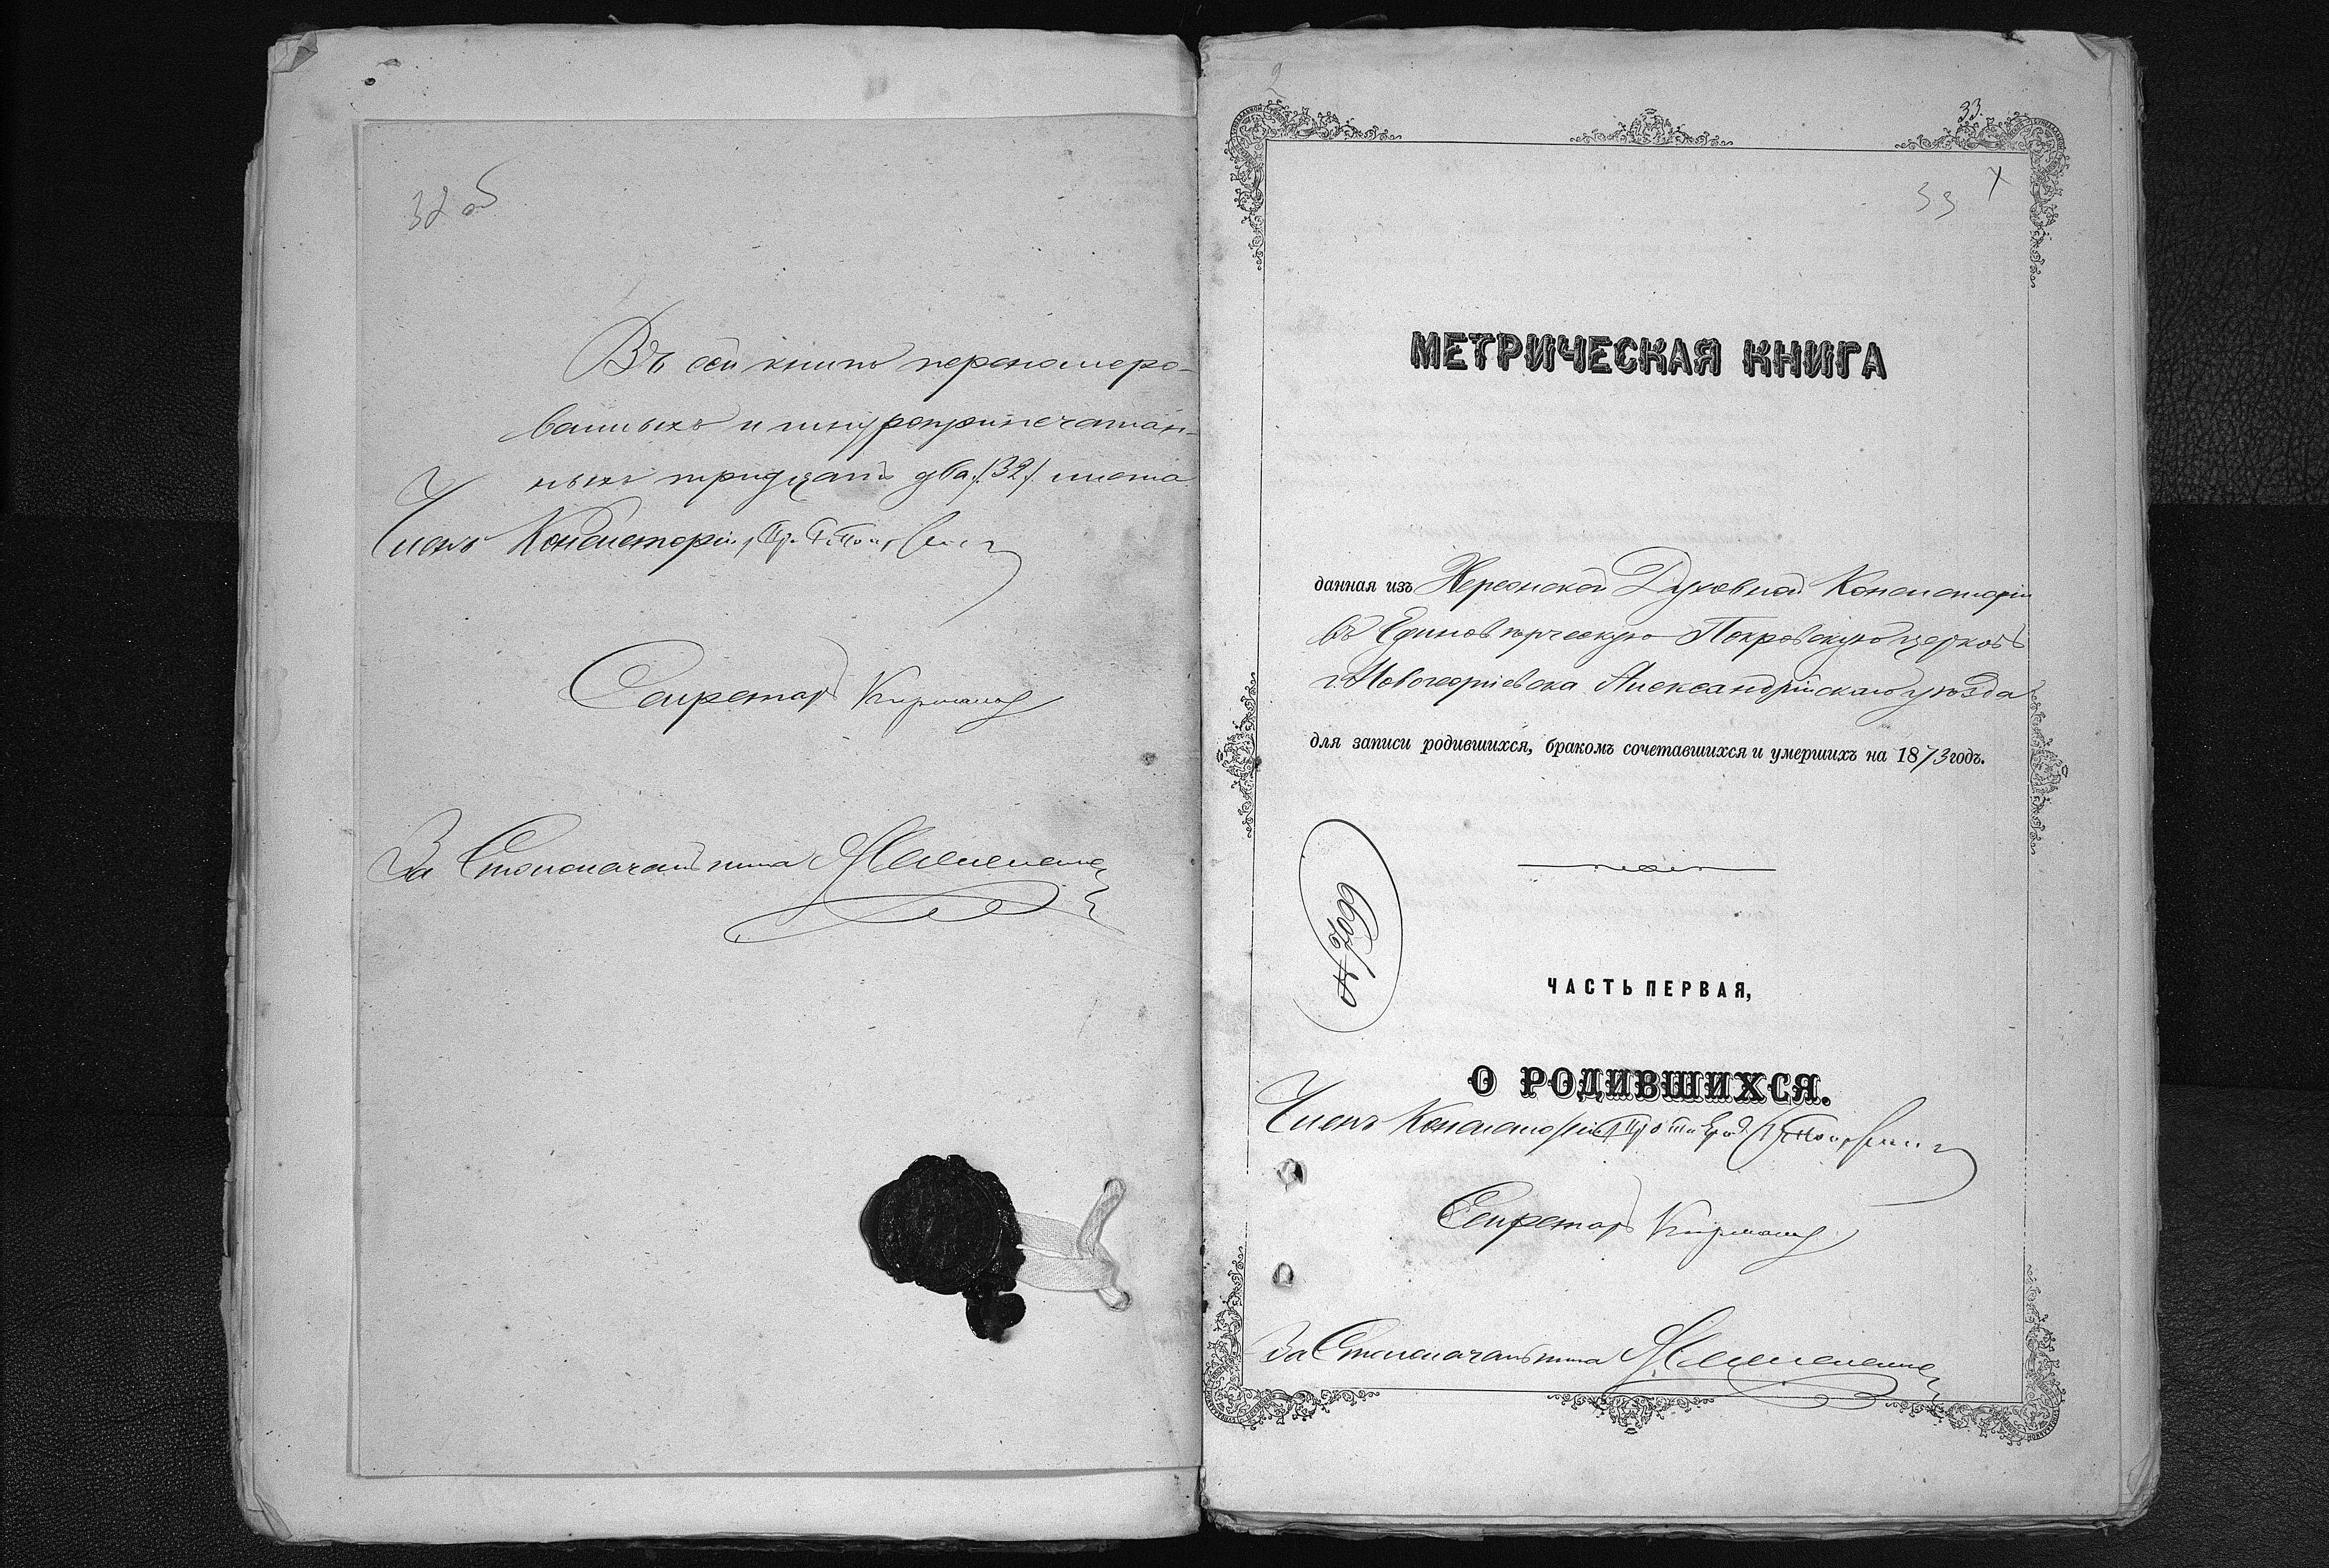 32 об
Въ сей книгѣ перономеро-
ванныхъ и шнуроприпечатан-
ныхъ тридцать два /32/ листа
Членъ Консисторіи, Пр.
Секретарь
За Столоначальника
33.
33
МЕТРИЧЕСКАЯ КНИГА
данная изъ Херсонской Духовной Консисторіи
въ Единовѣрческую Покровскую церковь
г. Новогеоргіевска Александрійскаго уѣзда
для записи родившихся, бракомъ сочетавшихся и умершихъ на 1873 годъ.
№ 7099
ЧАСТЬ ПЕРВАЯ,
О РОДИВШИХСЯ.
Членъ Консисторіи, Протоіерей
Секретарь
За Столоначальника